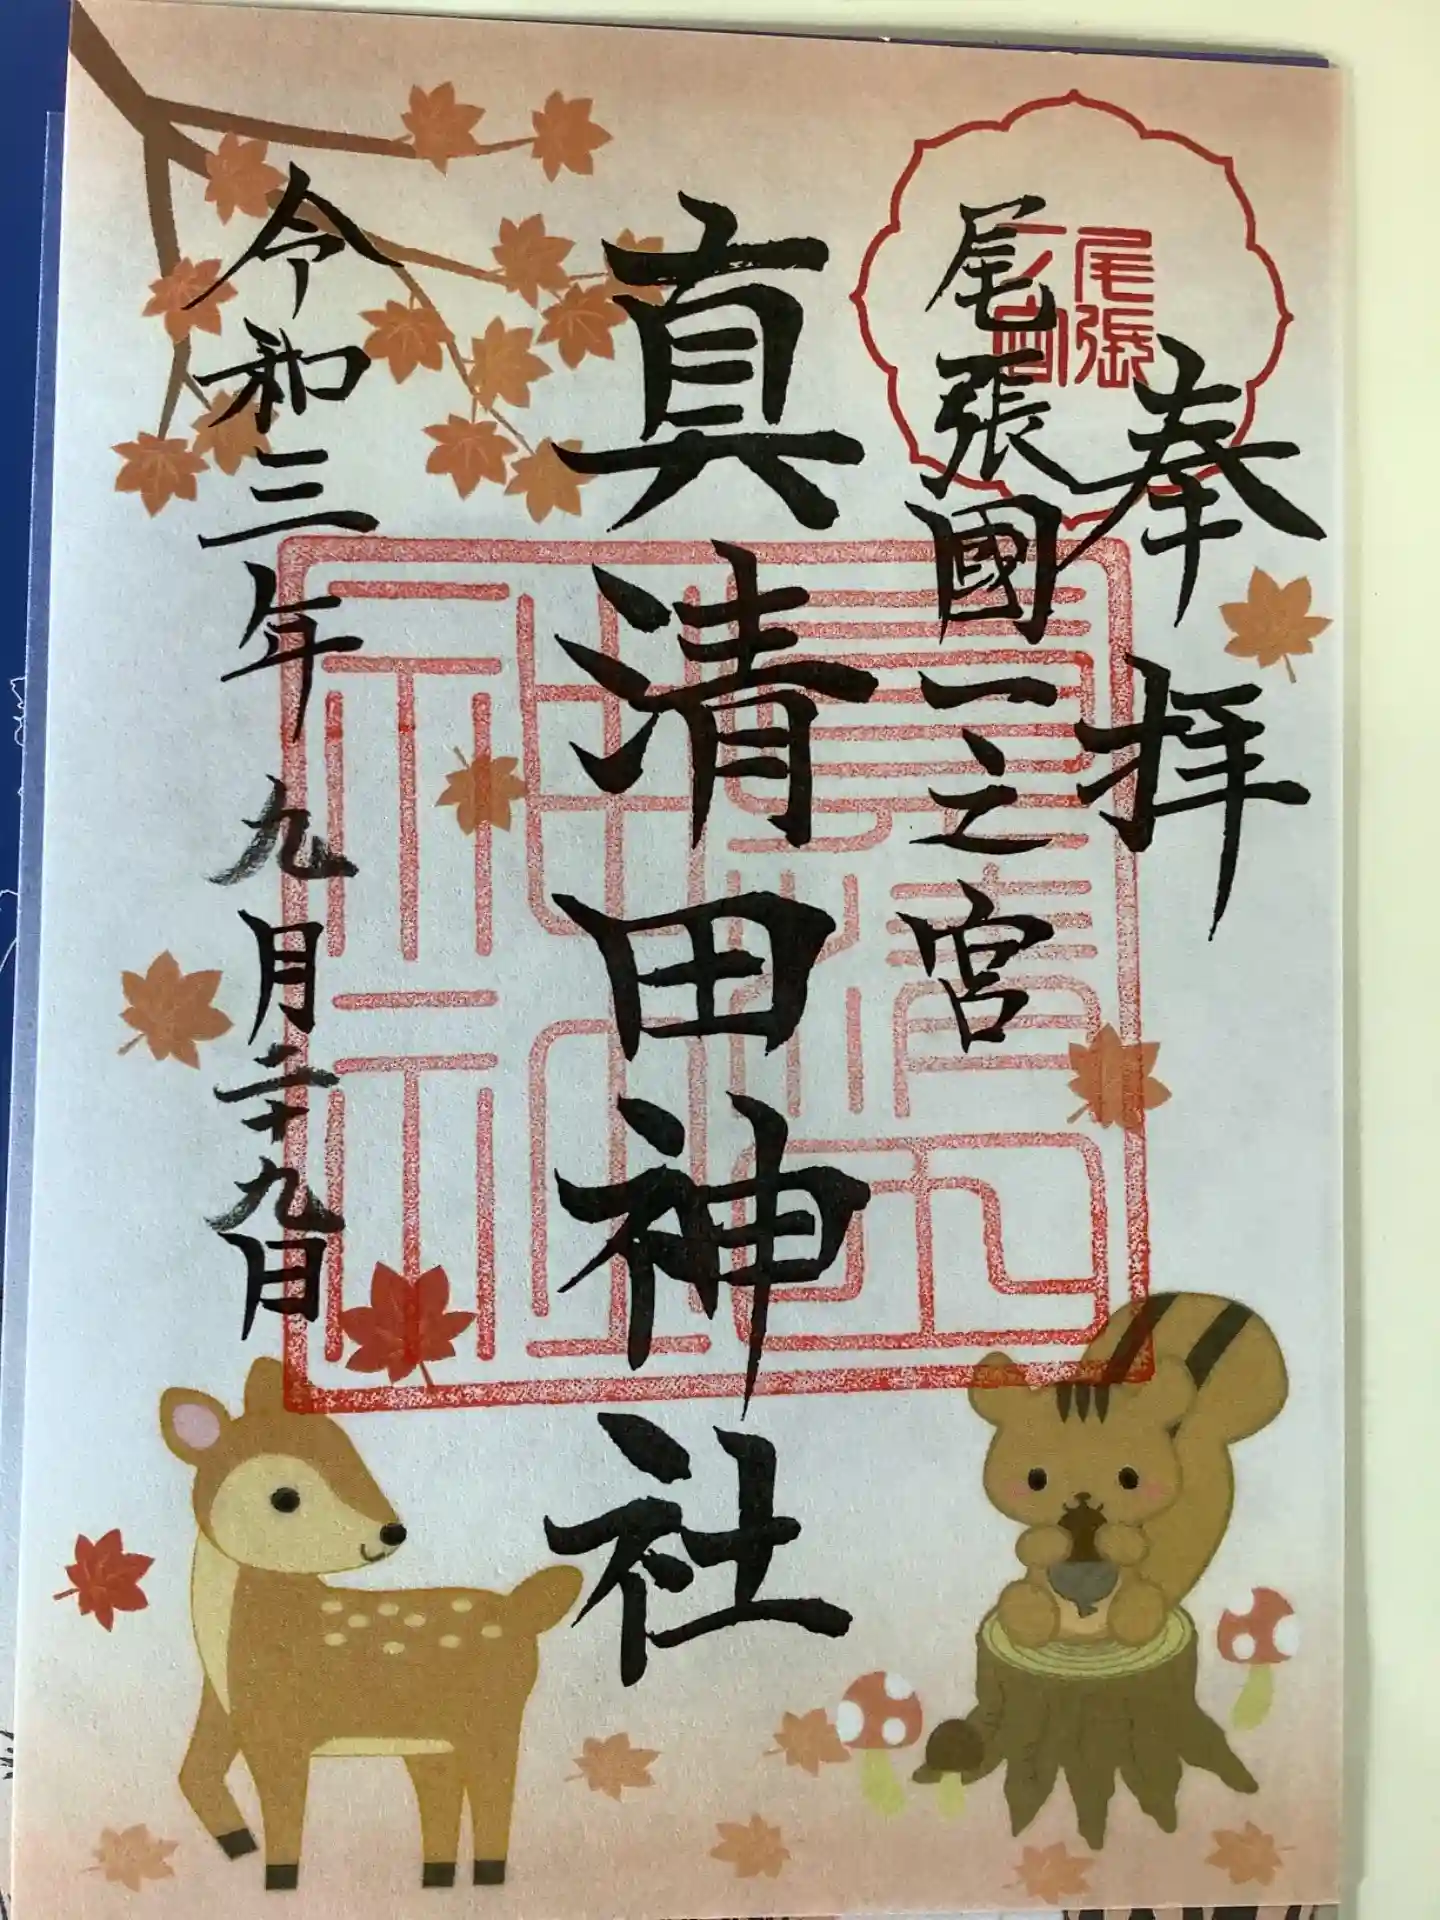 奉拝
尾張
一之宮
尾張國一之宮
真清田神社
真清田神社
令和三年九月二十九日